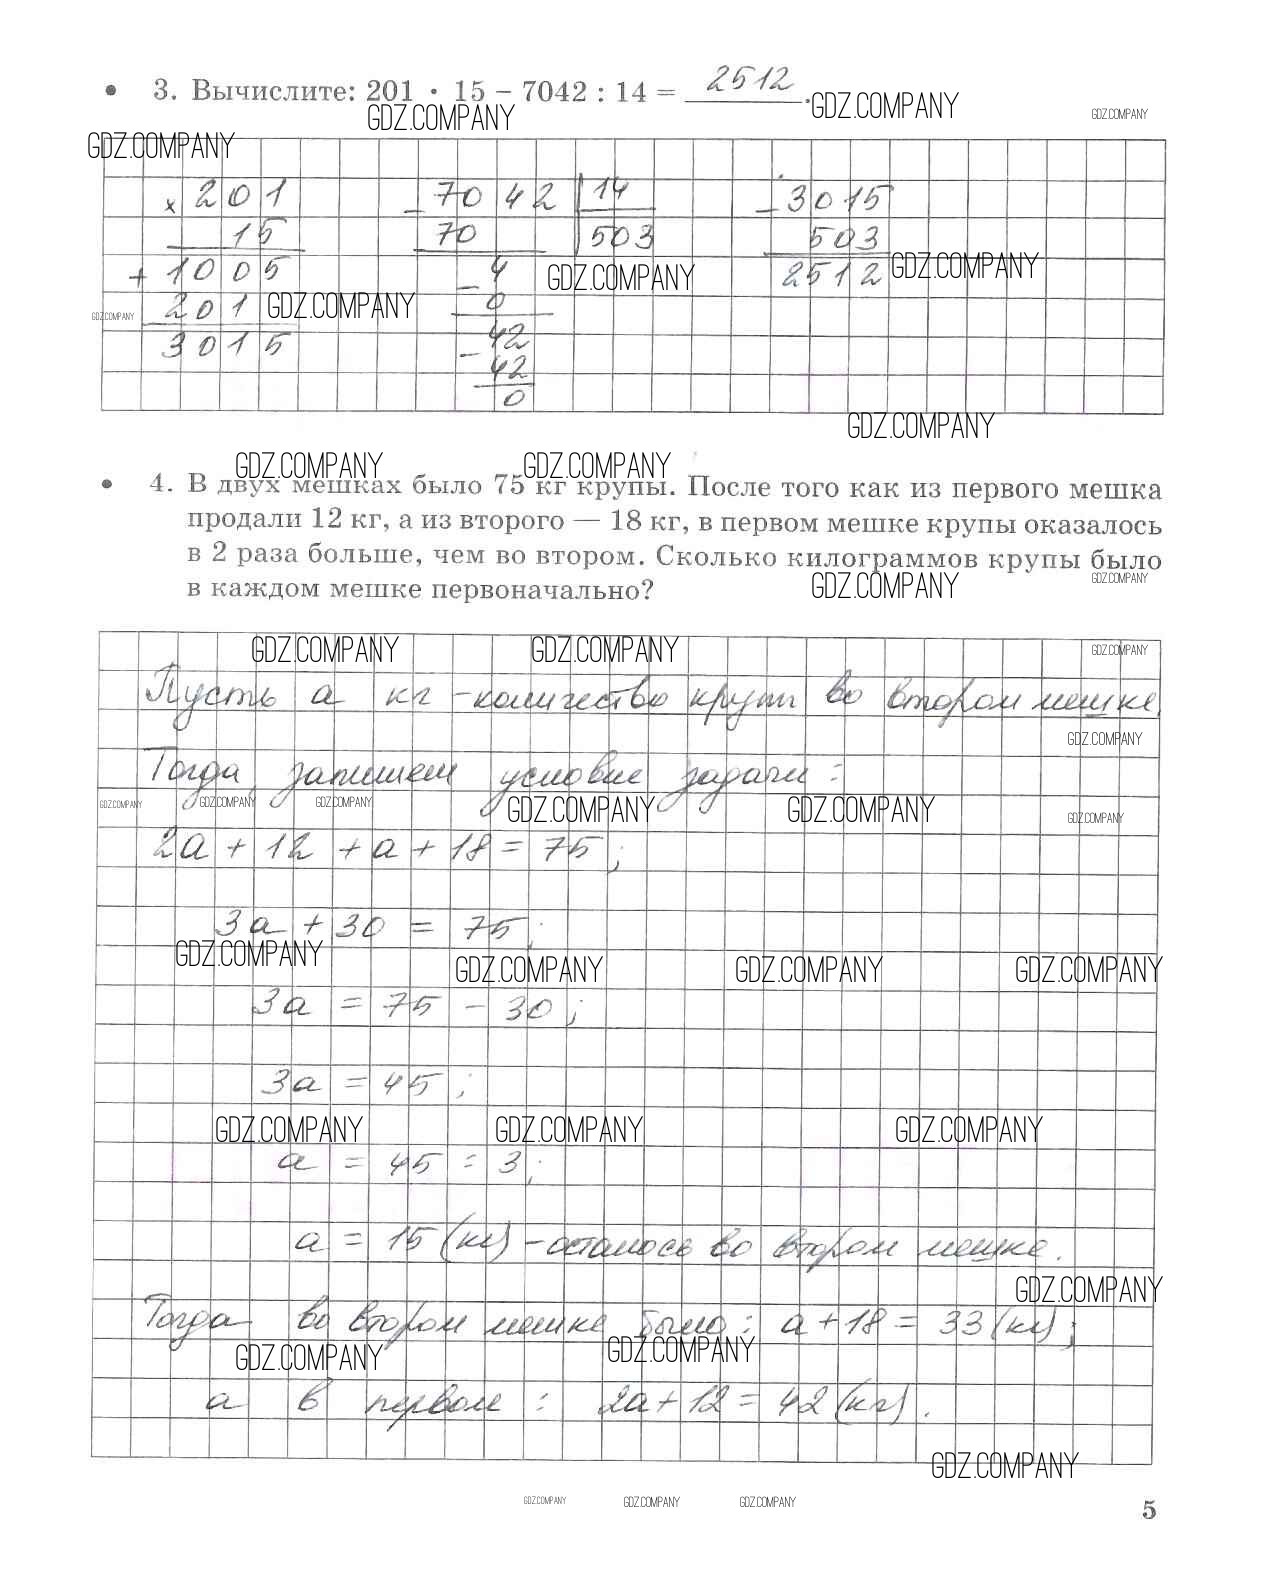 • 3. Вычислите: 201 · 15 – 7042 : 14 = 2512.
GDZ.COMPANY GDZ.COMPANY GDZ.COMPANY
GDZ.COMPANY
× 201 – 7042 | 14 – 3015
15 70 503 503
+ 1005 – 4 GDZ.COMPANY 2512 GDZ.COMPANY
GDZ.COMPANY 201 GDZ.COMPANY 0
3015 – 42
42
0
GDZ.COMPANY
GDZ.COMPANY GDZ.COMPANY
• 4. В двух мешках было 75 кг крупы. После того как из первого мешка
продали 12 кг, а из второго — 18 кг, в первом мешке крупы оказалось
в 2 раза больше, чем во втором. Сколько килограммов крупы было
в каждом мешке первоначально?
GDZ.COMPANY GDZ.COMPANY
GDZ.COMPANY GDZ.COMPANY GDZ.COMPANY
Пусть а кг - количество крупы во втором мешке.
GDZ.COMPANY
Тогда запишем условие задачи:
GDZ.COMPANY GDZ.COMPANY GDZ.COMPANY GDZ.COMPANY GDZ.COMPANY GDZ.COMPANY
2а + 12 + а + 18 = 75;
3а + 30 = 75;
GDZ.COMPANY GDZ.COMPANY GDZ.COMPANY GDZ.COMPANY
3а = 75 – 30;
3а = 45;
GDZ.COMPANY GDZ.COMPANY GDZ.COMPANY
а = 45 : 3;
а = 15 (кг) - осталось во втором мешке.
GDZ.COMPANY
Тогда во втором мешке было: а + 18 = 33 (кг);
GDZ.COMPANY GDZ.COMPANY
а в первом: 2а + 12 = 42 (кг).
GDZ.COMPANY
GDZ.COMPANY GDZ.COMPANY GDZ.COMPANY
5